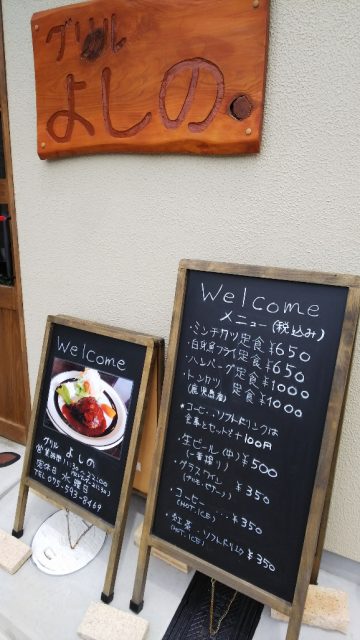 グリル
よしの
Welcome
グリル よしの
定休日 水曜日
TEL 095-593-8469
Welcome
メニュー(税込み)
・ミンチカツ定食¥650
・白身魚フライ定食¥650
・ハンバーグ定食¥1000
・トンカツ 定食¥1000
(鹿児島産)
●コーヒー、ソフトドリンクは
食事とセットで+100円
・生ビール(中)¥500
(一番搾り)
・グラスワイン ¥350
・コーヒー... ¥350
(HOT.ICE)
・紅茶.ソフトドリンク ¥350
(HOT.ICE)